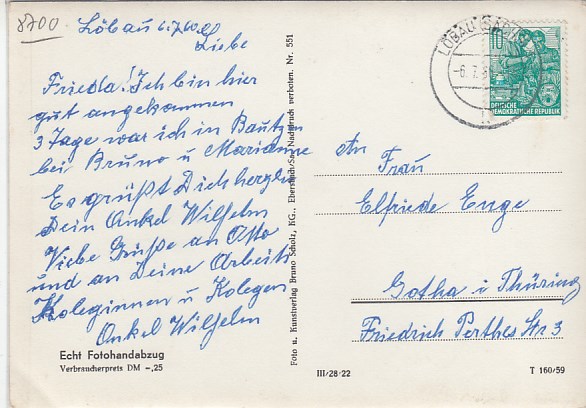 8700
Löbau 6.7.60
Liebe
Frieda! Ich bin hier
gut angekommen
3 Tage war ich in Bautzen
bei Bruno u Marianne
Es grüßt Dich herzl
Dein Onkel Wilhelm
Viebe Grüße an Otto
und an Deine Arbeits
Koleginnen u Kolegen
Onkel Wilhelm
Echt Fotohandabzug
Verbraucherpreis DM –,25
Foto u. Kunstverlag Bruno Scholz, KG., Ebersbach/Sa. Nachdruck verboten. Nr. 551
LÖBAU (SACHS)
-6.7.
10
DEUTSCHE
DEMOKRATISCHE REPUBLIK
An Frau
Elfriede Enge
Gotha i Thüring
Friedrich Perthes Str 3
III/28/22
T 160/59